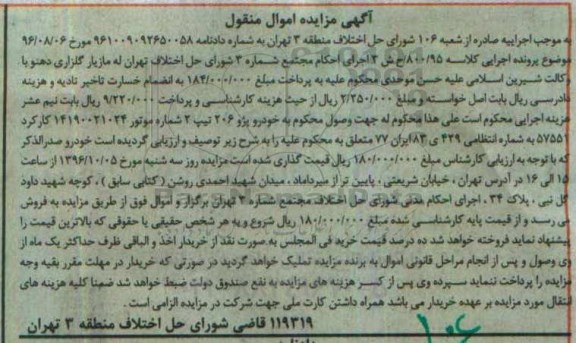 آگهی مزایده اموال منقول
به موجب اجراییه صادره از شعبه ۱۰۶ شورای حل اختلاف منطقه ۳ تهران به شماره دادنامه ۹۶۱۰۰۹۰۹۲۶۵۰۰۵۸ مورخ ۹۶/۰۸/۰۶
موضوع پرونده اجرایی کلاسه ۸۰۰/۹۵/ج ش ۳ اجرای احکام مجتمع شماره ۳ شورای حل اختلاف تهران له مازیار گلزاری دهنو با
وکالت شیرین اسلامی علیه حسن موحدی محکوم علیه به پرداخت مبلغ ۱۸۴/۰۰۰/۰۰۰ به انضمام خسارت تاخیر تادیه و هزینه
دادرسی ریال بابت اصل خواسته و مبلغ ۲/۲۵۰/۰۰۰ ریال از حیث هزینه کارشناسی و پرداخت ۹/۲۲۰/۰۰۰ ریال بابت نیم عشر
هزینه اجرایی محکوم است علی هذا محکوم له جهت وصول محکوم به خودرو پژو ۲۰۶ تیپ ۲ شماره موتور ۱۴۱۹۰۰۲۱۰۲۴ کارکرد
۵۷۵۵۱ به شماره انتظامی ۴۲۹ ی ۸۳ ایران ۷۷ متعلق به محکوم علیه را به شرح زیر توصیف و ارزیابی گردیده است خودرو صدرالذکر
که با توجه به ارزیابی کارشناس مبلغ ۱۸۰/۰۰۰/۰۰۰ ریال قیمت گذاری شده است مزایده روز سه شنبه مورخ ۱۳۹۶/۱۰/۰۵ از ساعت
۱۵ الی ۱۶ در آدرس تهران ، خیابان شریعتی ، پایین تر از میرداماد ، میدان شهید احمدی روشن (کتابی سابق) ، کوچه شهید داود
گل نبی ، پلاک ۳۴ ، اجرای احکام مدنی شورای حل اختلاف مجتمع شماره ۳ تهران برگزار و اموال فوق از طریق مزایده به فروش
می رسد و از قیمت پایه کارشناسی شده مبلغ ۱۸۰/۰۰۰/۰۰۰ ریال شروع و به هر شخص حقیقی یا حقوقی که بالاترین قیمت را
پیشنهاد نماید فروخته خواهد شد ده درصد قیمت خرید فی المجلس به صورت نقد از خریدار اخذ و الباقی ظرف حداکثر یک ماه از
وی وصول و پس از انجام مراحل قانونی اموال به برنده مزایده تملیک خواهد گردید در صورتی که خریدار در مهلت مقرر بقیه وجه
مزایده را پرداخت ننماید سپرده وی پس از کسر هزینه های مزایده به نفع صندوق دولت ضبط خواهد شد ضمنا کلیه هزینه های
انتقال مورد مزایده بر عهده خریدار می باشد همراه داشتن کارت ملی جهت شرکت در مزایده الزامی است .
۱۱۹۳۱۹ قاضی شورای حل اختلاف منطقه ۳ تهران
۱۰۶